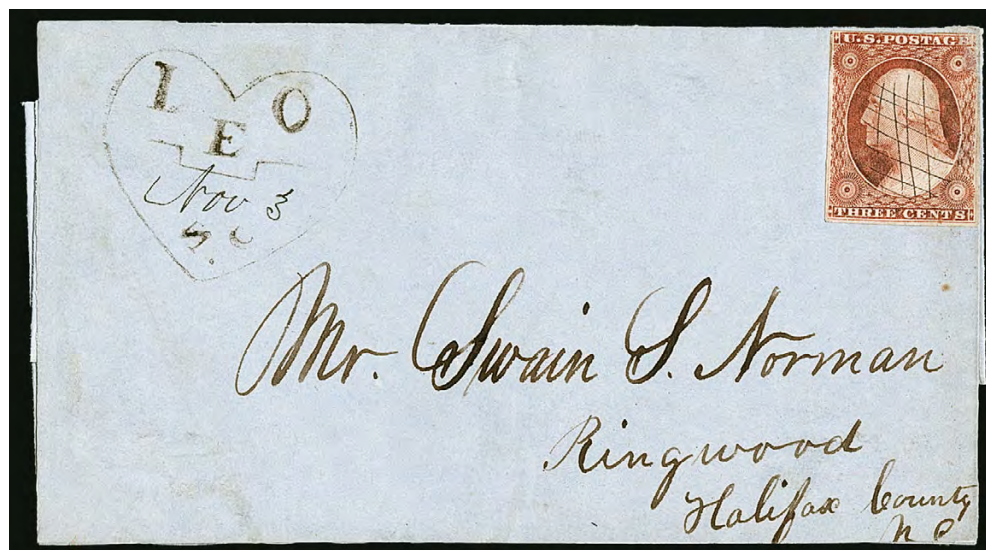 L E O
Nov 3
S. C
U.S.POSTAGE
THREE CENTS
Mr. Swain S. Norman
Ringwood
Halifax County
N C